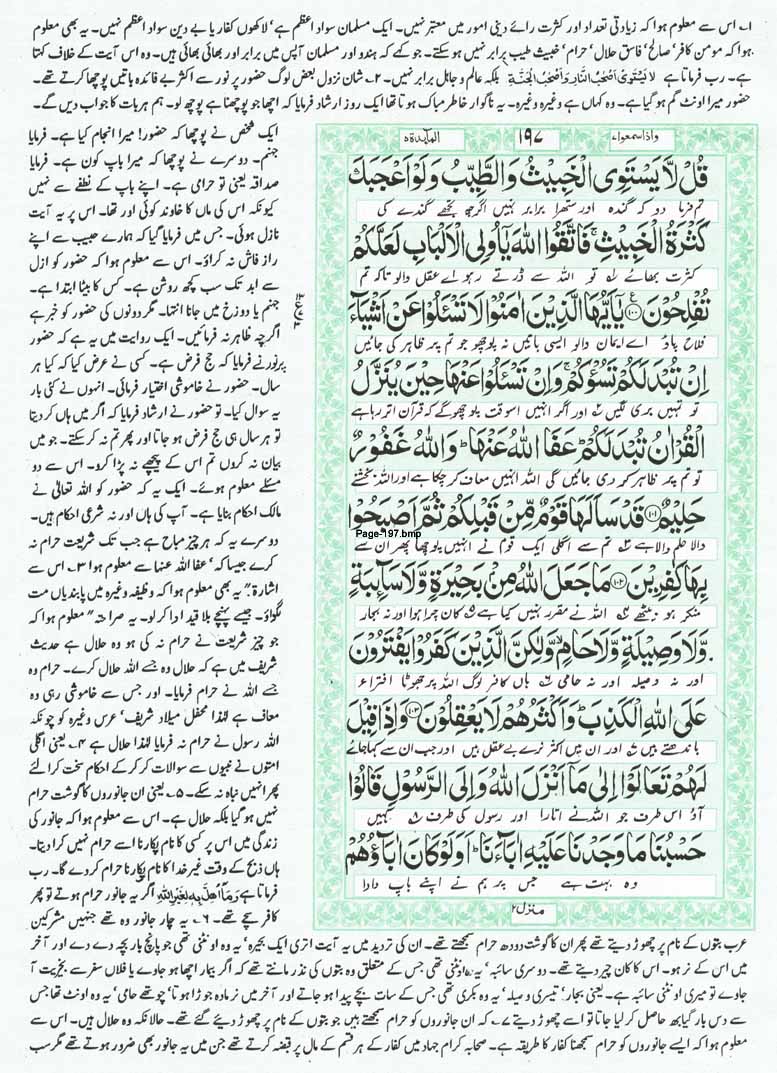 ۱۔ اس سے معلوم ہوا کہ زیادتی تعداد اور کثرت رائے دینی امور میں معتبر نہیں۔ ایک مسلمان سواد اعظم ہے، لاکھوں کفار یا بے دین سواد اعظم نہیں۔ یہ بھی معلوم
ہوا کہ مومن کافر، صالح، فاسق حلال، حرام، خبیث طیب برابر نہیں ہو سکتے۔ جو کہے کہ ہندو اور مسلمان آپس میں برابر اور بھائی بھائی ہیں۔ وہ اس آیت کے خلاف کہتا
ہے۔ رب فرماتا ہے لَا يَسْتَوِىْٓ اَصْحٰبُ النَّارِ وَاَصْحٰبُ الْجَنَّةِ بلکہ عالم و جاہل برابر نہیں۔ ۲۔ شان نزول بعض لوگ حضور پر نور سے اکثر بے فائدہ باتیں پوچھا کرتے تھے۔
حضور میرا اونٹ گم ہو گیا ہے۔ وہ کہاں ہے وغیرہ وغیرہ۔ یہ ناگوار خاطر مبارک ہوتا تھا ایک روز ارشاد فرمایا کہ اچھا جو پوچھنا ہے پوچھ لو۔ ہم ہر بات کا جواب دیں گے۔
ایک شخص نے پوچھا کہ حضور! میرا انجام کیا ہے۔ فرمایا
جہنم۔ دوسرے نے پوچھا کہ میرا باپ کون ہے۔ فرمایا
صداقہ یعنی تو حرامی ہے۔ اپنے باپ کے نطفے سے نہیں
کیونکہ اس کی ماں کا خاوند کوئی اور تھا۔ اس پر یہ آیت
نازل ہوئی۔ جس میں فرمایا گیا کہ ہمارے حبیب سے اپنے
راز فاش نہ کراؤ۔ اس سے معلوم ہوا کہ حضور کو ازل
سے ابد تک سب کچھ روشن ہے۔ کس کا بیٹا ابتدا ہے۔
جہنم یا دوزخ میں جانا انتہا۔ مگر دونوں کی حضور کو خبر ہے
اگرچہ ظاہر نہ فرمائیں۔ ایک روایت میں یہ ہے کہ حضور
پر نور نے فرمایا کہ حج فرض ہے۔ کسی نے عرض کیا کہ کیا ہر
سال۔ حضور نے خاموشی اختیار فرمائی۔ انہوں نے کئی بار
یہ سوال کیا۔ تو حضور نے ارشاد فرمایا کہ اگر میں ہاں کر دیتا
تو ہر سال ہی حج فرض ہو جاتا اور پھر تم نہ کر سکتے۔ جو میں
بیان نہ کروں تم اس کے پیچھے نہ پڑا کرو۔ اس سے دو
مسئلے معلوم ہوئے۔ ایک یہ کہ حضور کو اللہ تعالیٰ نے
مالک احکام بنایا ہے۔ آپ کی ہاں اور نہ شرعی احکام ہیں۔
دوسرے یہ کہ ہر چیز مباح ہے جب تک شریعت حرام نہ
کرے جیسا کہ، عفا اللہ عنہا سے معلوم ہوا ۳۔ اس سے
اشارۃ" یہ بھی معلوم ہوا کہ وظیفہ وغیرہ میں پابندیاں مت
لگواؤ۔ جیسے پہنچے بلا قید ادا کر لو۔ یہ صراحتہ" معلوم ہوا کہ
جو چیز شریعت نے حرام نہ کی ہو وہ حلال ہے حدیث
شریف میں ہے کہ حلال وہ جسے اللہ حلال کرے۔ حرام وہ
جسے اللہ نے حرام فرمایا۔ اور جس سے خاموشی رہی وہ
معاف ہے لہذا محفل میلاد شریف، عرس وغیرہ کو چونکہ
اللہ رسول نے حرام نہ فرمایا لہذا حلال ہے ۴۔ یعنی اگلی
امتوں نے نبیوں سے سوالات کر کر کے احکام سخت کرا لئے
پھر انہیں نباہ نہ سکے۔ ۵۔ یعنی ان جانوروں کا گوشت حرام
نہیں ہو گیا بلکہ حلال ہے۔ اس سے معلوم ہوا کہ جانور کی
زندگی میں اس پر کسی کا نام پکارنا اسے حرام نہیں کرا دیتا۔
ہاں ذبح کے وقت غیر خدا کا نام پکارنا حرام کر دے گا۔ رب
فرماتا ہے وَمَآ اُهِلَّ بِهٖ لِغَيْرِ اللّٰهِ اگر یہ جانور حرام ہوتے تو پھر
کافر سچے تھے۔ ۶۔ یہ چار جانور وہ تھے جنہیں مشرکین
واذاسمعوا۷ ۱۹۷ المآئدۃ۵
قُلْ لَّا يَسْتَوِى الْخَبِيْثُ وَالطَّيِّبُ وَلَوْ اَعْجَبَكَ
تم فرما دو کہ گندہ اور ستھرا برابر نہیں اگرچہ تجھے گندے کی
كَثْرَةُ الْخَبِيْثِ ۚ فَاتَّقُوا اللّٰهَ يٰٓاُولِى الْاَلْبَابِ لَعَلَّكُمْ
کثرت بھائے ۱؎ تو اللہ سے ڈرتے رہو اے عقل والو تاکہ تم
تُفْلِحُوْنَ ۱۰۰ يٰٓاَيُّهَا الَّذِيْنَ اٰمَنُوْا لَا تَسْـَٔلُوْا عَنْ اَشْيَآءَ
فلاح پاؤ اے ایمان والو ایسی باتیں نہ پوچھو جو تم پر ظاہر کی جائیں
اِنْ تُبْدَ لَكُمْ تَسُؤْكُمْ ۚ وَاِنْ تَسْـَٔلُوْا عَنْهَا حِيْنَ يُنَزَّلُ
تو تمہیں بری لگیں ۲؎ اور اگر انہیں اسوقت پوچھو گے کہ قرآن اتر رہا ہے
الْقُرْاٰنُ تُبْدَ لَكُمْ ؕ عَفَا اللّٰهُ عَنْهَا ؕ وَاللّٰهُ غَفُوْرٌ
تو تم پر ظاہر کر دی جائیں گی اللہ انہیں معاف کر چکا ہے اور اللہ بخشنے
حَلِيْمٌ ۱۰۱ قَدْ سَاَلَهَا قَوْمٌ مِّنْ قَبْلِكُمْ ثُمَّ اَصْبَحُوْا
Page-197.bmp
والا حلم والا ہے ۳؎ تم سے اگلی ایک قوم نے انہیں پوچھا پھر ان سے
بِهَا كٰفِرِيْنَ ۱۰۲ مَا جَعَلَ اللّٰهُ مِنْۢ بَحِيْرَةٍ وَّلَا سَآئِبَةٍ
منکر ہو بیٹھے ۴؎ اللہ نے مقرر نہیں کیا ہے ۵؎ کان چرا ہوا اور نہ بجار
وَّلَا وَصِيْلَةٍ وَّلَا حَامٍ ۙ وَّلٰكِنَّ الَّذِيْنَ كَفَرُوْا يَفْتَرُوْنَ
اور نہ وصیلہ اور نہ حامی ۶؎ ہاں کافر لوگ اللہ پر جھوٹا افتراء
عَلَى اللّٰهِ الْكَذِبَ ؕ وَاَكْثَرُهُمْ لَا يَعْقِلُوْنَ ۱۰۳ وَاِذَا قِيْلَ
باندھتے ہیں ۷؎ اور ان میں اکثر نرے بے عقل ہیں اور جب ان سے کہا جائے
لَهُمْ تَعَالَوْا اِلٰى مَآ اَنْزَلَ اللّٰهُ وَاِلَى الرَّسُوْلِ قَالُوْا
آؤ اس طرف جو اللہ نے اتارا اور رسول کی طرف کہیں
حَسْبُنَا مَا وَجَدْنَا عَلَيْهِ اٰبَآءَنَا ؕ اَوَلَوْ كَانَ اٰبَآؤُهُمْ
وہ بہت ہے جس پر ہم نے اپنے باپ دادا
منزل۲
عرب بتوں کے نام پر چھوڑ دیتے تھے پھر ان کا گوشت دودھ حرام سمجھتے تھے۔ ان کی تردید میں یہ آیت اتری ایک بحیرہ، یہ وہ اونٹنی تھی جو پانچ بار بچہ دے دے اور آخر
میں اس کے نر ہو۔ اس کا کان چیر دیتے تھے۔ دوسری سائبہ، یہ وہ اونٹنی تھی جس کے متعلق وہ بتوں کی نذر مانتے تھے کہ اگر بیمار اچھا ہو جاوے یا فلاں سفر سے بخیریت آ
جاوے تو میری اونٹنی سائبہ ہے۔ یعنی بجار، تیسری وصیلہ، یہ وہ بکری تھی جس کے سات بچے پیدا ہو جاتے اور آخر میں نر مادہ جوڑا ہوتا، چوتھے حامی، یہ وہ اونٹ تھا جس
سے دس بار گیابھ حاصل کر لیا جاتا تو اسے چھوڑ دیتے ۷۔ کہ ان جانوروں کو حرام سمجھتے ہیں جو بتوں کے نام پر چھوڑ دیئے گئے تھے۔ حالانکہ وہ حلال ہیں۔ اس سے
معلوم ہوا کہ ایسے جانوروں کو حرام سمجھنا کفار کا طریقہ ہے۔ صحابہ کرام جہاد میں کفار کے ہر قسم کے مال پر قبضہ کرتے تھے جن میں یہ جانور بھی ضرور ہوتے تھے مگر سب